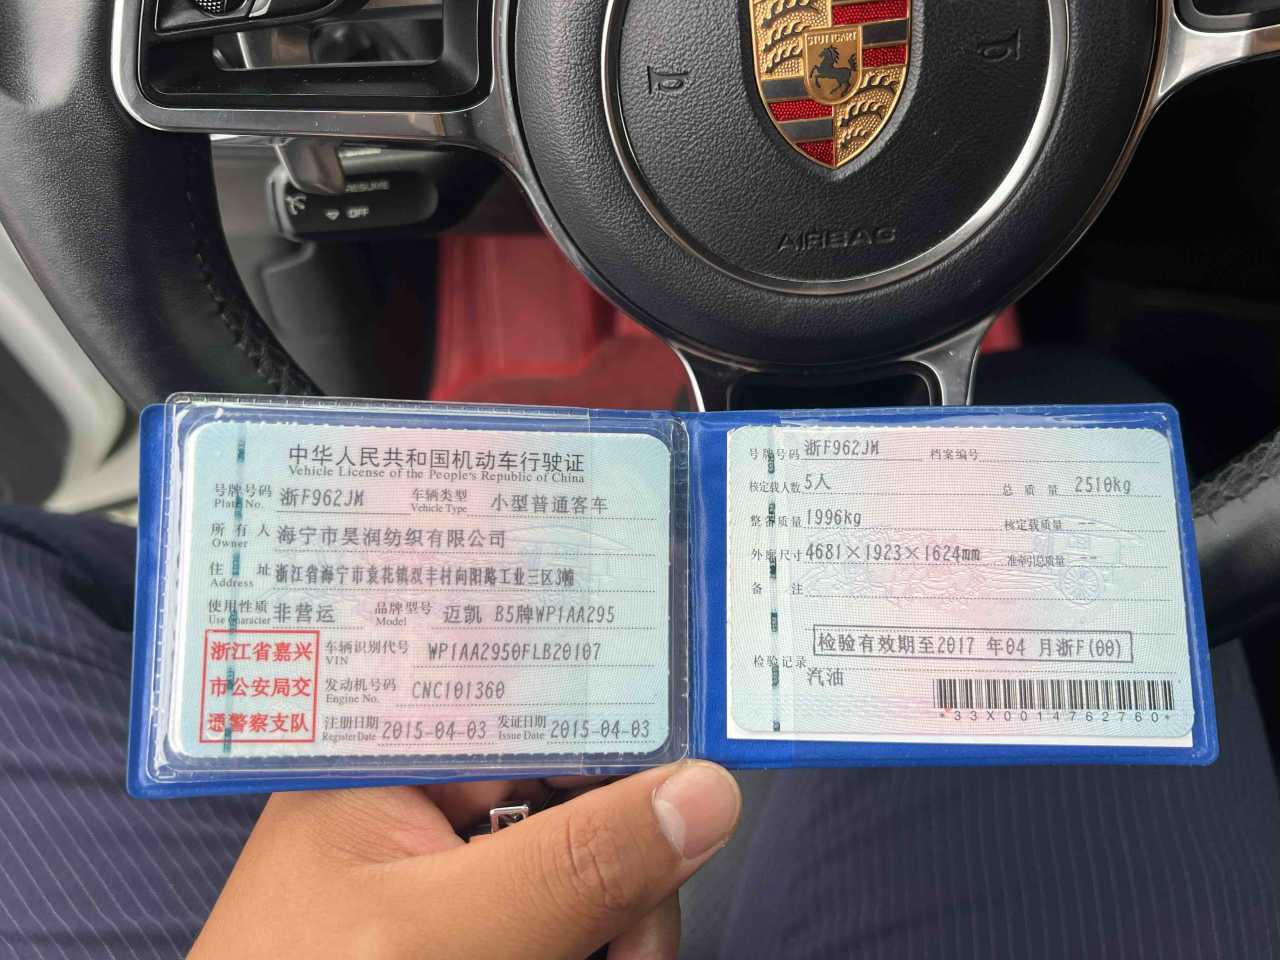 STUTTGART
AIRBAG
RESUME
OFF
中华人民共和国机动车行驶证
Vehicle License of the People's Republic of China
号牌号码 浙F962JM 车辆类型 小型普通客车
Plate No. Vehicle Type
所有人 海宁市昊润纺织有限公司
Owner
住址 浙江省海宁市袁花镇双丰村向阳路工业三区3幢
Address
使用性质 非营运 品牌型号 迈凯 B5牌WP1AA295
Use Character Model
浙江省嘉兴
市公安局交
通警察支队
车辆识别代号 WP1AA2950FLB20107
VIN
发动机号码 CNC101360
Engine No.
注册日期 2015-04-03 发证日期 2015-04-03
Register Date Issue Date
号牌号码 浙F962JM 档案编号
核定载人数 5人 总质量 2510kg
整备质量 1996kg 核定载质量 --
外廓尺寸 4681×1923×1624mm 准牵引总质量 --
备注
检验有效期至2017 年04 月浙F(00)
检验记录
汽油
*33X0014762760*